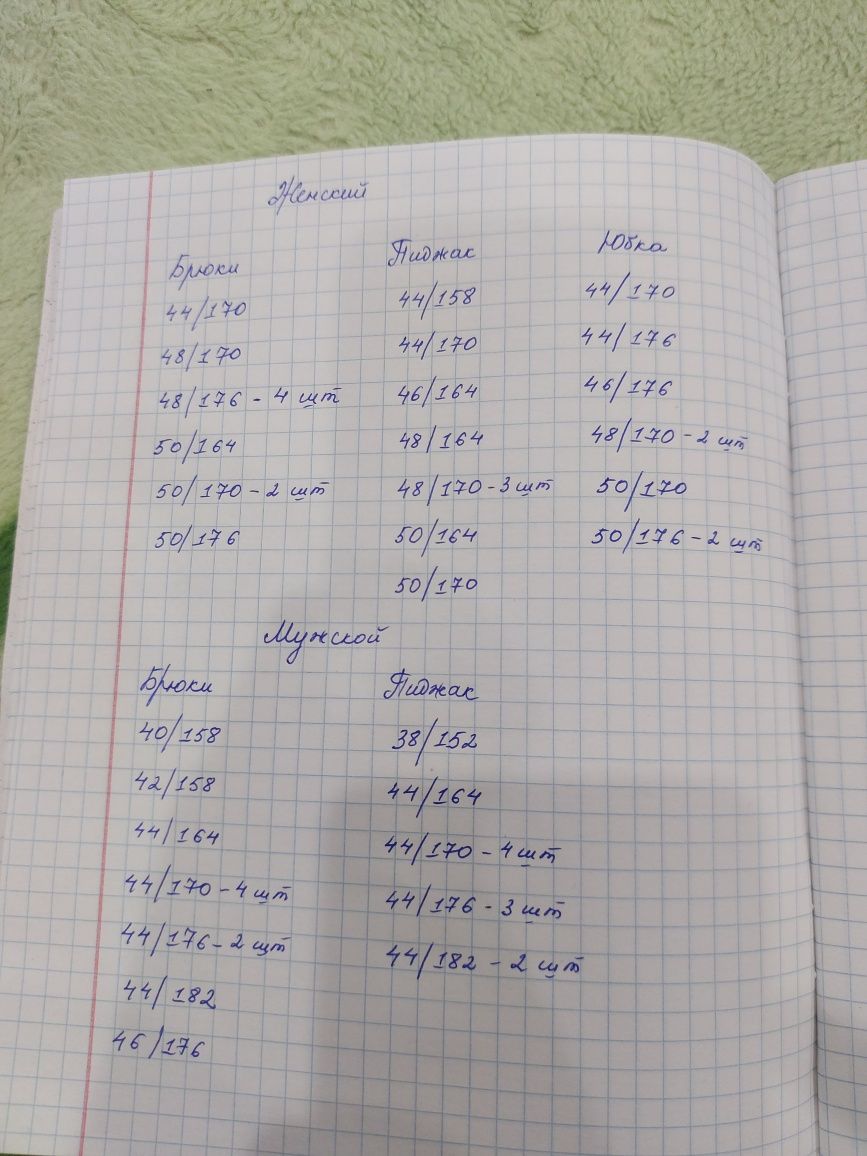 Женский
Брюки Пиджак Юбка
44/170 44/158 44/170
48/170 44/170 44/176
48/176 - 4 шт 46/164 46/176
50/164 48/164 48/170 - 2 шт
50/170 - 2 шт 48/170 - 3 шт 50/170
50/176 50/164 50/176 - 2 шт
50/170
Мужской
Брюки Пиджак
40/158 38/152
42/158 44/164
44/164 44/170 - 4 шт
44/170 - 4 шт 44/176 - 3 шт
44/176 - 2 шт 44/182 - 2 шт
44/182
46/176